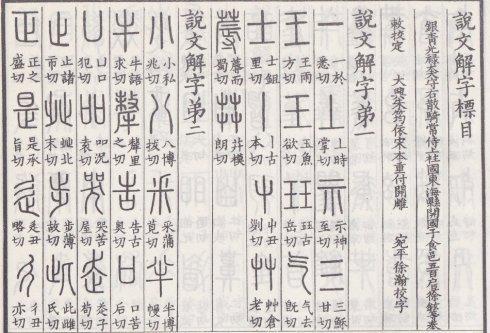 說文解字標目
銀青光祿大夫守右散騎常侍上柱國東海縣開國子食邑五百戶臣徐鉉等奉
敕校定 大興朱筠依宋本重付開雕 宛平徐瀚校字
說文解字弟一
一 一於悉切 丄 丄時掌切 示 示神至切 三 三穌甘切
王 王雨方切 玉 玉魚欲切 玨 玨古岳切 气 气去旣切
士 士鉏切 丨 丨古本切 屮 屮丑切 艸 艸倉老切
蓐 蓐而蜀切 茻 茻模朗切
說文解字弟二
小 小私兆切 八 八博拔切 釆 釆蒲莧切 半 半博幔切
牛 牛語求切 犛 犛里之切 告 告古奧切 口 口苦后切
凵 凵口犯切 吅 吅況袁切 哭 哭苦屋切 走 走子苟切
止 止諸市切 癶 癶北末切 步 步薄故切 此 此雌氏切
正 正之盛切 是 是承旨切 辵 辵丑略切 彳 彳丑亦切